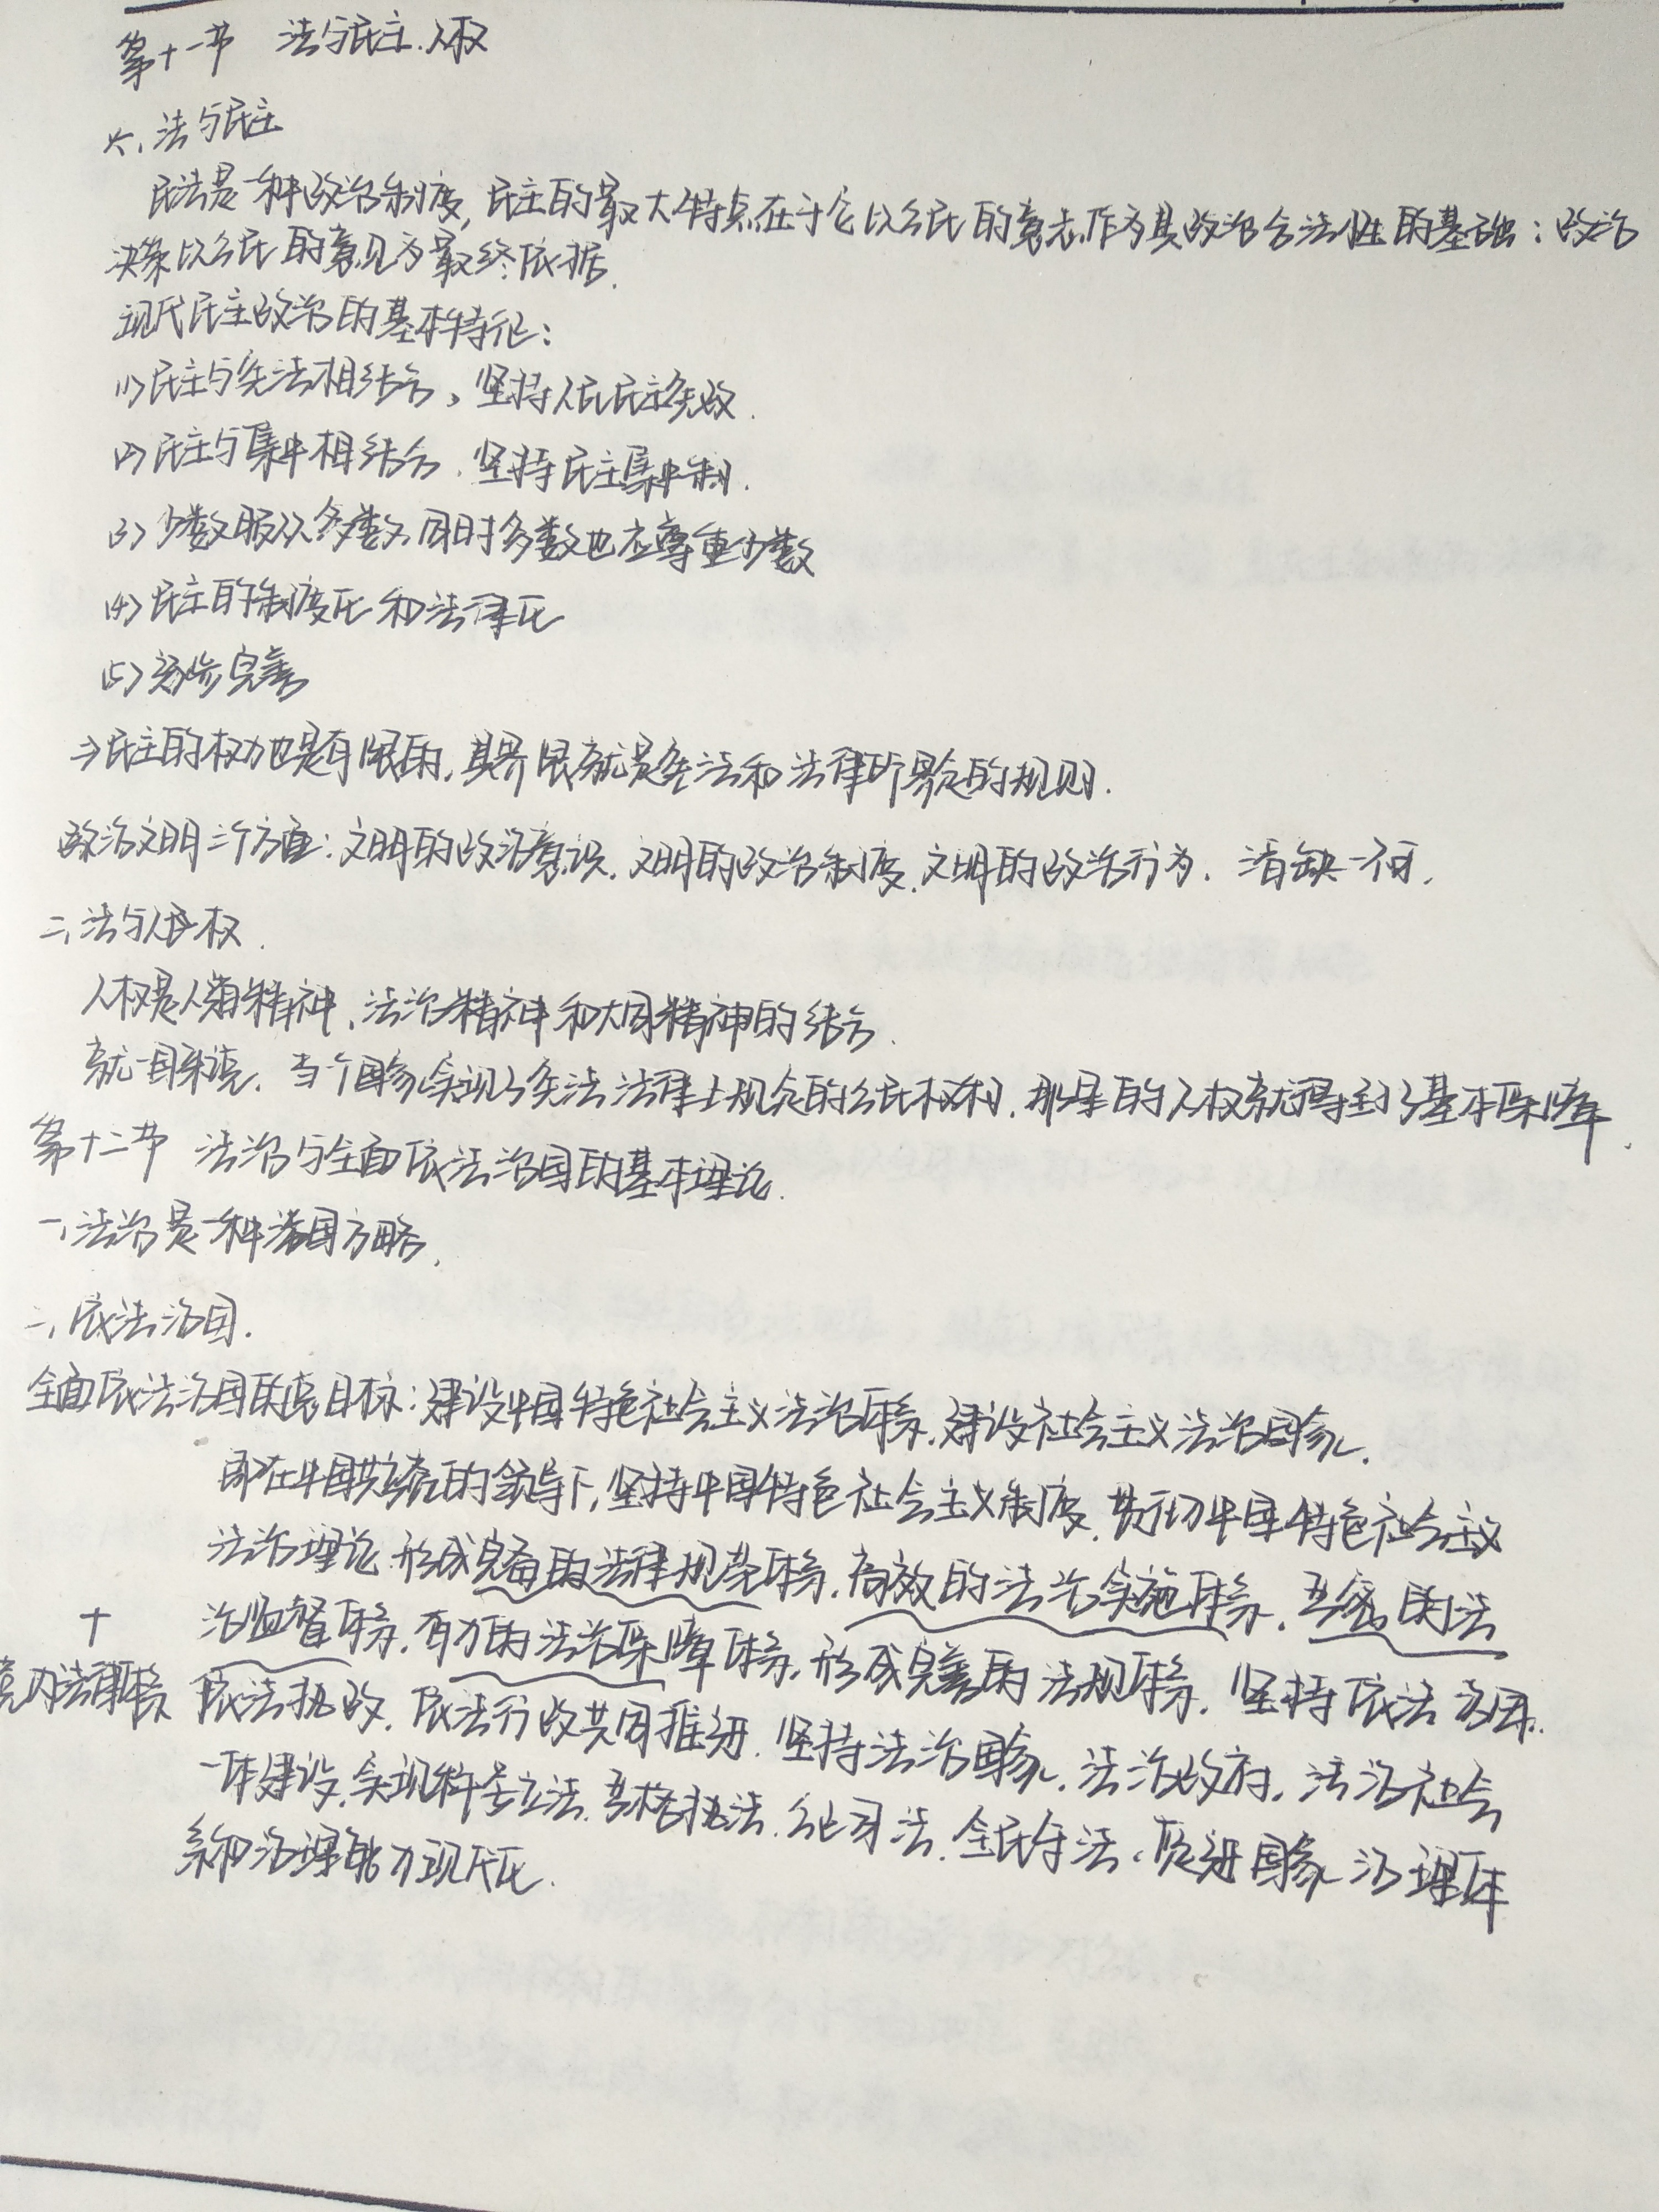 第十一节 法与民主、人权
六、法与民主
民法是一种政治制度,民主的最大特点在于它以公民的意志作为其政治合法性的基础;政治
决策以公民的意见为最终依据.
现代民主政治的基本特征:
(1)民主与宪法相结合,坚持人民民主宪政.
(2)民主与集中相结合,坚持民主集中制.
(3)少数服从多数,同时多数也应尊重少数
(4)民主的制度化和法律化
(5)逐步完善
⇒民主的权力也是有限的,其界限就是宪法和法律所界定的规则.
政治文明三个方面:文明的政治意识.文明的政治制度.文明的政治行为. 缺一不可.
二、法与人权.
人权是人道精神、法治精神和大同精神的结合.
就一国来说.当一个国家实现了宪法法律上规定的公民权利.那里的人权就得到了基本保障.
第十二节 法治与全面依法治国的基本理论.
一、法治是一种治国方略.
二、依法治国.
全面依法治国的总目标:建设中国特色社会主义法治体系.建设社会主义法治国家.
即在中国共产党的领导下,坚持中国特色社会主义制度.贯彻中国特色社会主义
法治理论.形成完备的法律规范体系.高效的法治实施体系.严密的法
十 治监督体系.有力的法治保障体系.形成完善的法规体系. 坚持依法治国.
党内法规体系 依法执政.依法行政共同推进.坚持法治国家.法治政府.法治社会
一体建设.实现科学立法.严格执法.公正司法.全民守法.促进国家治理体
系和治理能力现代化.